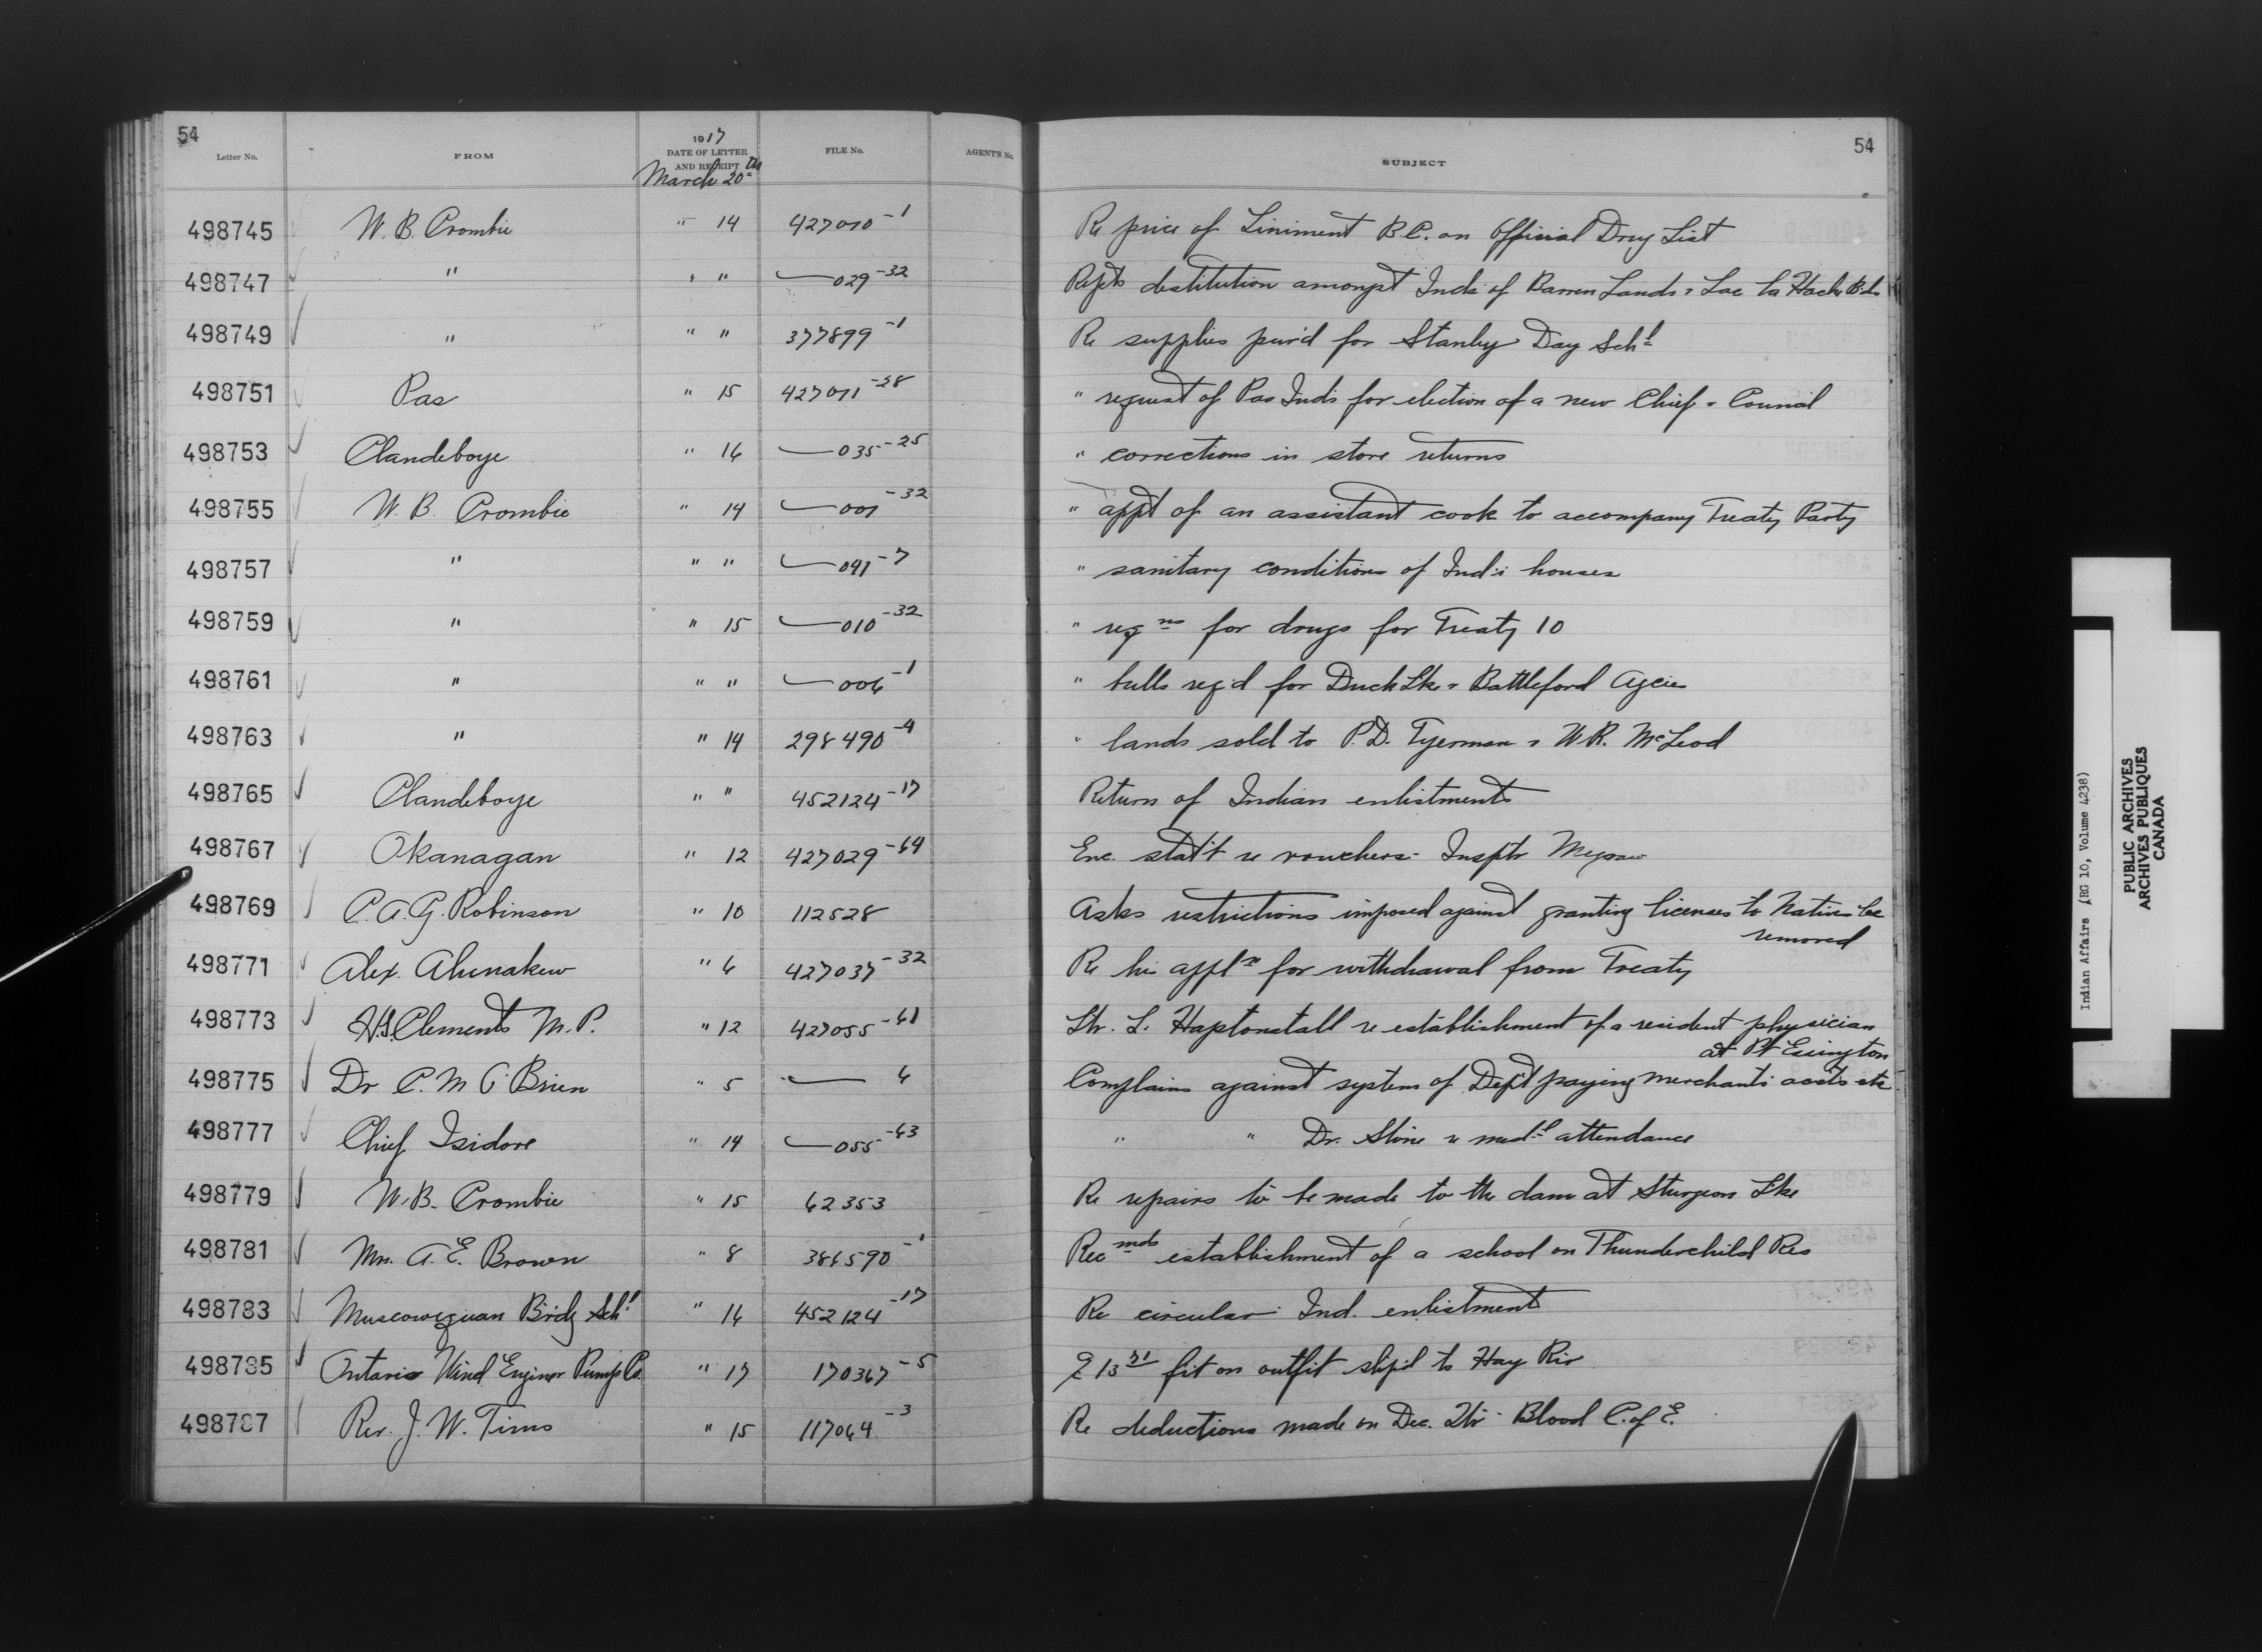 54
Letter No. FROM 1917 DATE OF LETTER AND RECEIPT FILE No. AGENT'S No. SUBJECT 54
March 20th
498745 W. B. Crombie " 14 427010-1 Re price of Liniment B.C. on Official Drug List
498747 " " " —029-32 Repts destitution amongst Inds of Barren Lands & Lac la Hache Bds
498749 " " " 377899-1 Re supplies pur'd for Stanley Day Schl
498751 Pas " 15 427011-28 " request of Pas Inds for election of a new Chief & Council
498753 Clandeboye " 16 —035-25 " corrections in store returns
498755 W. B. Crombie " 14 —001-32 " appt of an assistant cook to accompany Treaty Party
498757 " " " —041-7 " sanitary conditions of Ind's houses
498759 " " 15 —010-32 " reqns for drugs for Treaty 10
498761 " " " —006-1 " bulls req'd for Duck Lke & Battleford Agcies
498763 " " 14 298490-4 " lands sold to P.D. Tyerman & W.R. McLeod
498765 Clandeboye " " 452124-17 Return of Indian enlistments
498767 Okanagan " 12 427029-64 Enc. stat't re vouchers - Insptr Megraw
498769 C. A. G. Robinson " 10 112528 Asks restrictions imposed against granting licenses to Natives be
removed
498771 Alex. Ahenakew " 6 427037-32 Re his appln for withdrawal from Treaty
498773 H.S. Clements M.P. " 12 427055-61 Ltr. L. Haptonstall re establishment of a resident physician
at Pt Essington
498775 Dr C. M O'Brien " 5 " — 6 Complains against system of Dep't paying merchants accts etc
498777 Chief Isidore " 14 —055-63 " " Dr. Stone re medl attendance
498779 W. B. Crombie " 15 62353 Re repairs to be made to the dam at Sturgeon Lke
498781 Mrs. A. E. Brown " 8 386590-1 Recmds establishment of a school on Thunderchild Res
498783 Muscowequan Brdg Schl " 16 452124-17 Re circular - Ind. enlistment
498785 Ontario Wind Engine & Pump Co. " 17 170367-5 frt on outfit ship'd to Hay Riv
498787 Rev. J. W. Tims " 15 117064-3 Re deductions made on Dec. Qtr - Blood C. of E.
Indian Affairs (RG 10, Volume 4238)
PUBLIC ARCHIVES
ARCHIVES PUBLIQUES
CANADA